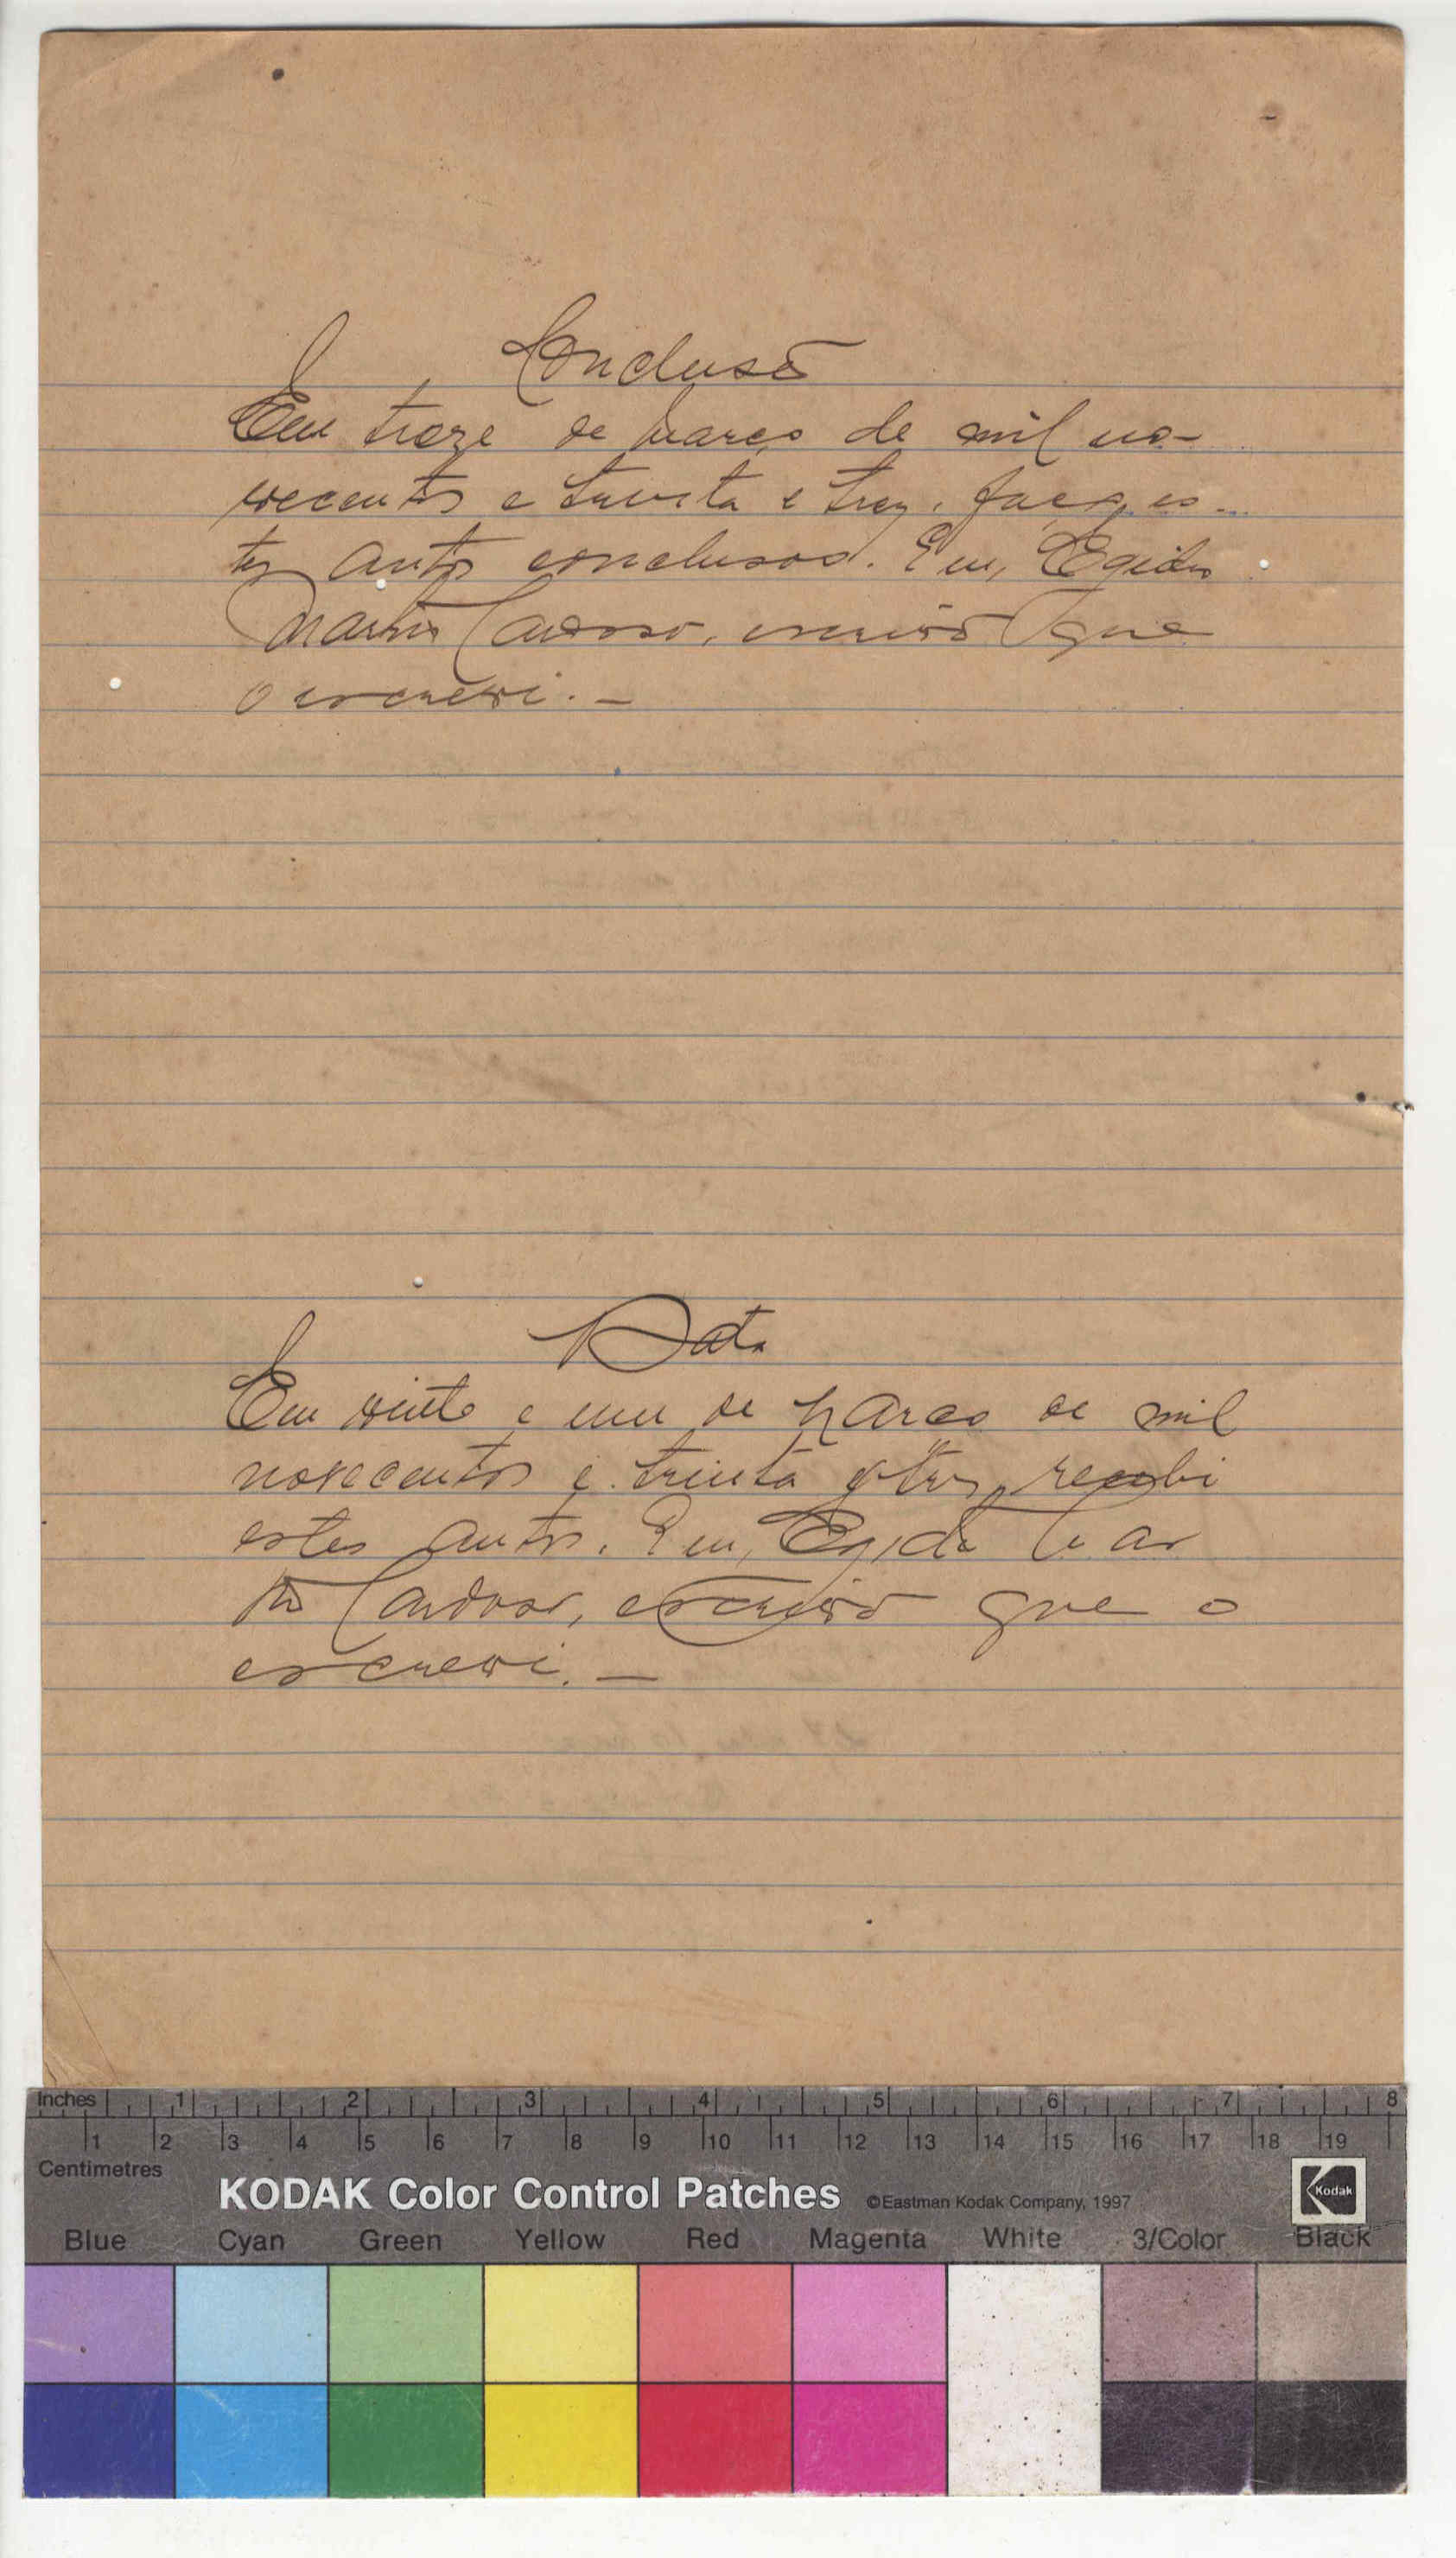 Conclusão
Em treze de março de mil no-
vecentos e trinta e trez, faço es-
tes autos conclusos. Eu, Egidio
Martins Cardoso, escrivão que
o escrevi. –
Data
Em vinte e um de março de mil
novecentos e trinta e tres, recebi
estes autos. Eu, Egidio Mar
tins Cardoso, escrivão que o
escrevi. –
Inches 1 2 3 4 5 6 7 8
1 2 3 4 5 6 7 8 9 10 11 12 13 14 15 16 17 18 19
Centimetres
KODAK Color Control Patches ©Eastman Kodak Company, 1997 Kodak
Blue Cyan Green Yellow Red Magenta White 3/Color Black